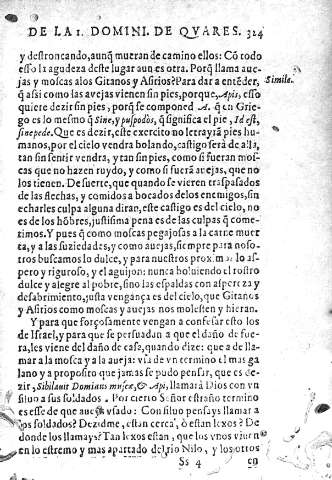 DE LA I. DOMINI. DE QVARES. 324
y destroncando, aunq̃ mueran de camino ellos: Cõ todo
esso la agudeza deste lugar aun es otra. Porq̃ llama aue-
jas y moscas a los Gitanos y Asirios? Para dar a entẽder,
Simile.
q̃ assi como las auejas vienen sin pies, porque, Apis, esso
quiere dezir sin pies, porq̃ se componed A. q̃ en Grie-
go es lo mesmo q̃, Sine, y puspodòs, q̃ significa el pie, Id est,
sinepede. Que es dezir, este exercito no le trayrã pies hu-
manos, por el cielo vendra bolando, castigo serà de alla,
tan sin sentir vendra, y tan sin pies, como si fueran mos-
cas que no hazen ruydo, y como si fuerã auejas, que no
los tienen. De suerte, que quando se vieren traspassados
de las flechas, y comidos a bocados delos enemigos, sin
echarles culpa alguna diran, este castigo es del cielo, no
es de los hõbres, justissima pena es de las culpas q̃ come-
timos. Y pues q̃ como moscas pegajosas a la carne muer
ta, y a las suziedades, y como auejas, siempre para noso-
tros buscamos lo dulce, y para nuestros proximos lo as-
pero y riguroso, y el aguijon: nunca boluiendo el rostro
dulce y alegre al pobre, sino las espaldas con aspereza y
desabrimiento, justa vengança es del cielo, que Gitanos
y Asirios como moscas y auejas nos molesten y hieran.
Y para que forçosamente vengan a confesar esto los
de Israel, y para que se persuadan a que el daño de fue-
ra, les viene del daño de casa, quando dize: que a de lla-
mar a la mosca y a la aueja: vsa de vn termino el mas ga
lano y a proposito que jamas se pudo pensar, que es de-
zir, Sibilauit Dominus muscæ, & Api, llamarà Dios con vn
siluo a sus soldados. Por cierto Señor estraño termino
es esse de que aueys vsado: Con siluo pensays llamar a
los soldados? Dezidme, estan cerca, ò estan lexos? De
donde los llamays? Tan lexos estan, que los vnos viuen
en lo estremo y mas apartado del rio Nilo, y los otros
Ss 4 en